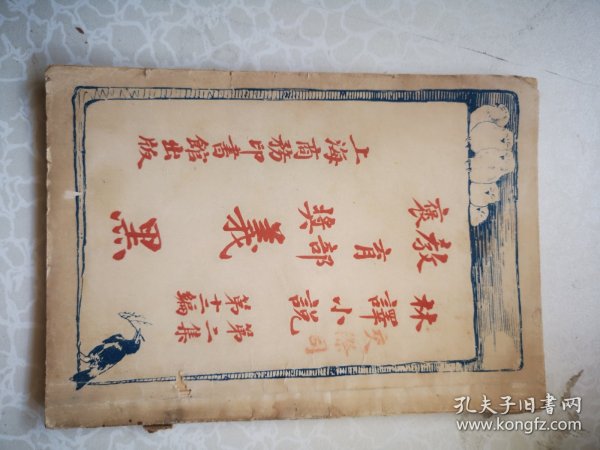 林譯小說
第二集
第十三編
教育部
褒獎
義黑
上海商務印書館出版
孔夫子旧书网
www.kongfz.com